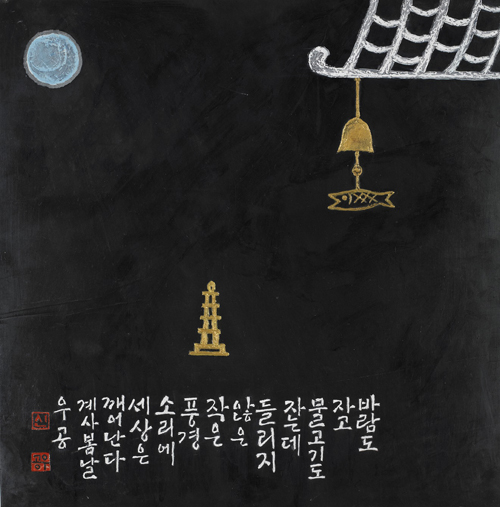 바람도
자고
물고기도
잔데
들리지
않은
작은
풍경
소리에
세상은
깨어난다
계사봄날
우공
신